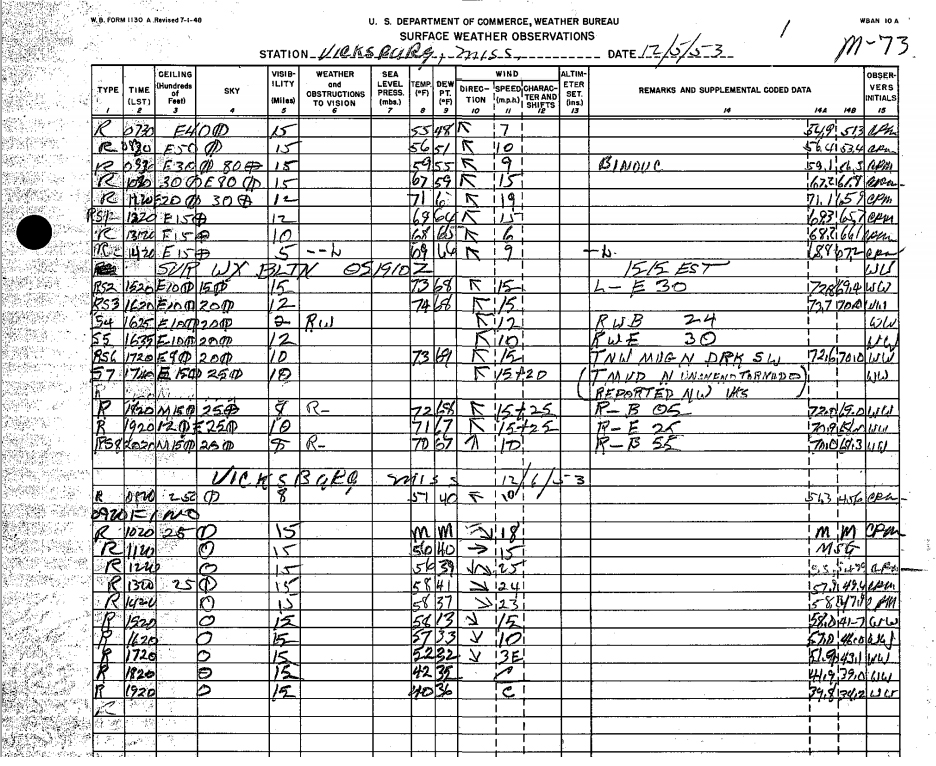 W. B. FORM 1130 A Revised 7-1-48
U. S. DEPARTMENT OF COMMERCE, WEATHER BUREAU
WBAN 10 A
SURFACE WEATHER OBSERVATIONS
M-73
STATION VICKSBURG, MISS. DATE 12/5/53
TYPE 1 TIME (LST) 2 CEILING (Hundreds of Feet) 3 SKY 4 VISIBILITY (Miles) 5 WEATHER and OBSTRUCTIONS TO VISION 6 SEA LEVEL PRESS. (mbs.) 7 TEMP. (°F) 8 DEW PT. (°F) 9 WIND DIRECTION 10 SPEED (m.p.h.) 11 CHARACTER AND SHIFTS 12 ALTIMETER SET. (ins.) 13 REMARKS AND SUPPLEMENTAL CODED DATA 14 14A 14B OBSERVERS INITIALS 15
R 0730 E40⦶ 15 55 48 ↖ 7 54.9 51.3 CPM
R 0830 E50⦶ 15 56 51 ↖ 10 56.4 53.4 CPM
R 0930 E30⦶ 80⊕ 15 59 55 ↖ 9 BINOVC 59.1 CPM
R 30⦶ E80⦶ 15 67 59 ↖ 15 CPM
R E20⦶ 30⊕ 12 71 ↖ 19 71.1 65.9 CPM
1220 E15⊕ 12 69 64 ↖ 15 69.3 65.7 CPM
R 1320 E15⊕ 10 68 65 ↖ 6 68.2 66.1 CPM
1420 E15⊕ 5 --L 69 66 ↖ 9 67.2 CPM
SVR WX BLTN 051910Z 1515 EST WW
RS2 1520 E10⦶ 15⦶ 15 73 68 ↖ 15 L- E 30 69.4 WW
RS3 1620 E10⦶ 20⦶ 12 74 68 ↖ 15 73.7 70.0 WW
S4 1625 E10⦶ 20⦶ 2 RW ↖ 12 RWB 24 WW
S5 1635 E10⦶ 20⦶ 12 ↖ 10 RWE 30 WW
RS6 1720 E9⦶ 20⦶ 10 73 69 ↖ 15 TNW MVG N DRK SW 72.6 70.0 WW
S7 1740 E15⦶ 25⦶ 10 ↖ 15+20 (TMVD N UNCNFND TORNADO) WW
REPORTED NW VKS
R 1820 M15⦶ 25⊕ 8 R- 72 68 ↖ 15+25 R- B 05 72.0 69.0 WW
R 1920 12⦶ E25⦶ 10 71 67 ↖ 15+25 R- E 25 WW
RS8 2020 M15⦶ 25⦶ 8 R- 70 67 ↑ 10 R- B 55 WW
VICKSBURG MISS 12/6/53
R 250⦶ 8 51 40 ↖ 10 CPM
0920 FINO
R 1020 25⦶ 15 M M ↘ 18 M M CPM
R 1120 ○ 15 50 40 → 15 MSG
R 1220 ○ 15 56 39 25
R 1300 25⦶ 15 58 41 ↘ 24 CPM
R 1420 ○ 15 58 37 ↘ 23
R 1520 ○ 15 58 ↘ 15 58.0 41.7 WW
R 1620 ○ 15 57 33 ↓ 10 57.0 WW
R 1720 ○ 15 52 32 ↓ 3E 51.9 43.1 WW
R 1820 ○ 15 42 35 C 41.9 39.0 WW
R 1920 ○ 15 40 36 C WW
R